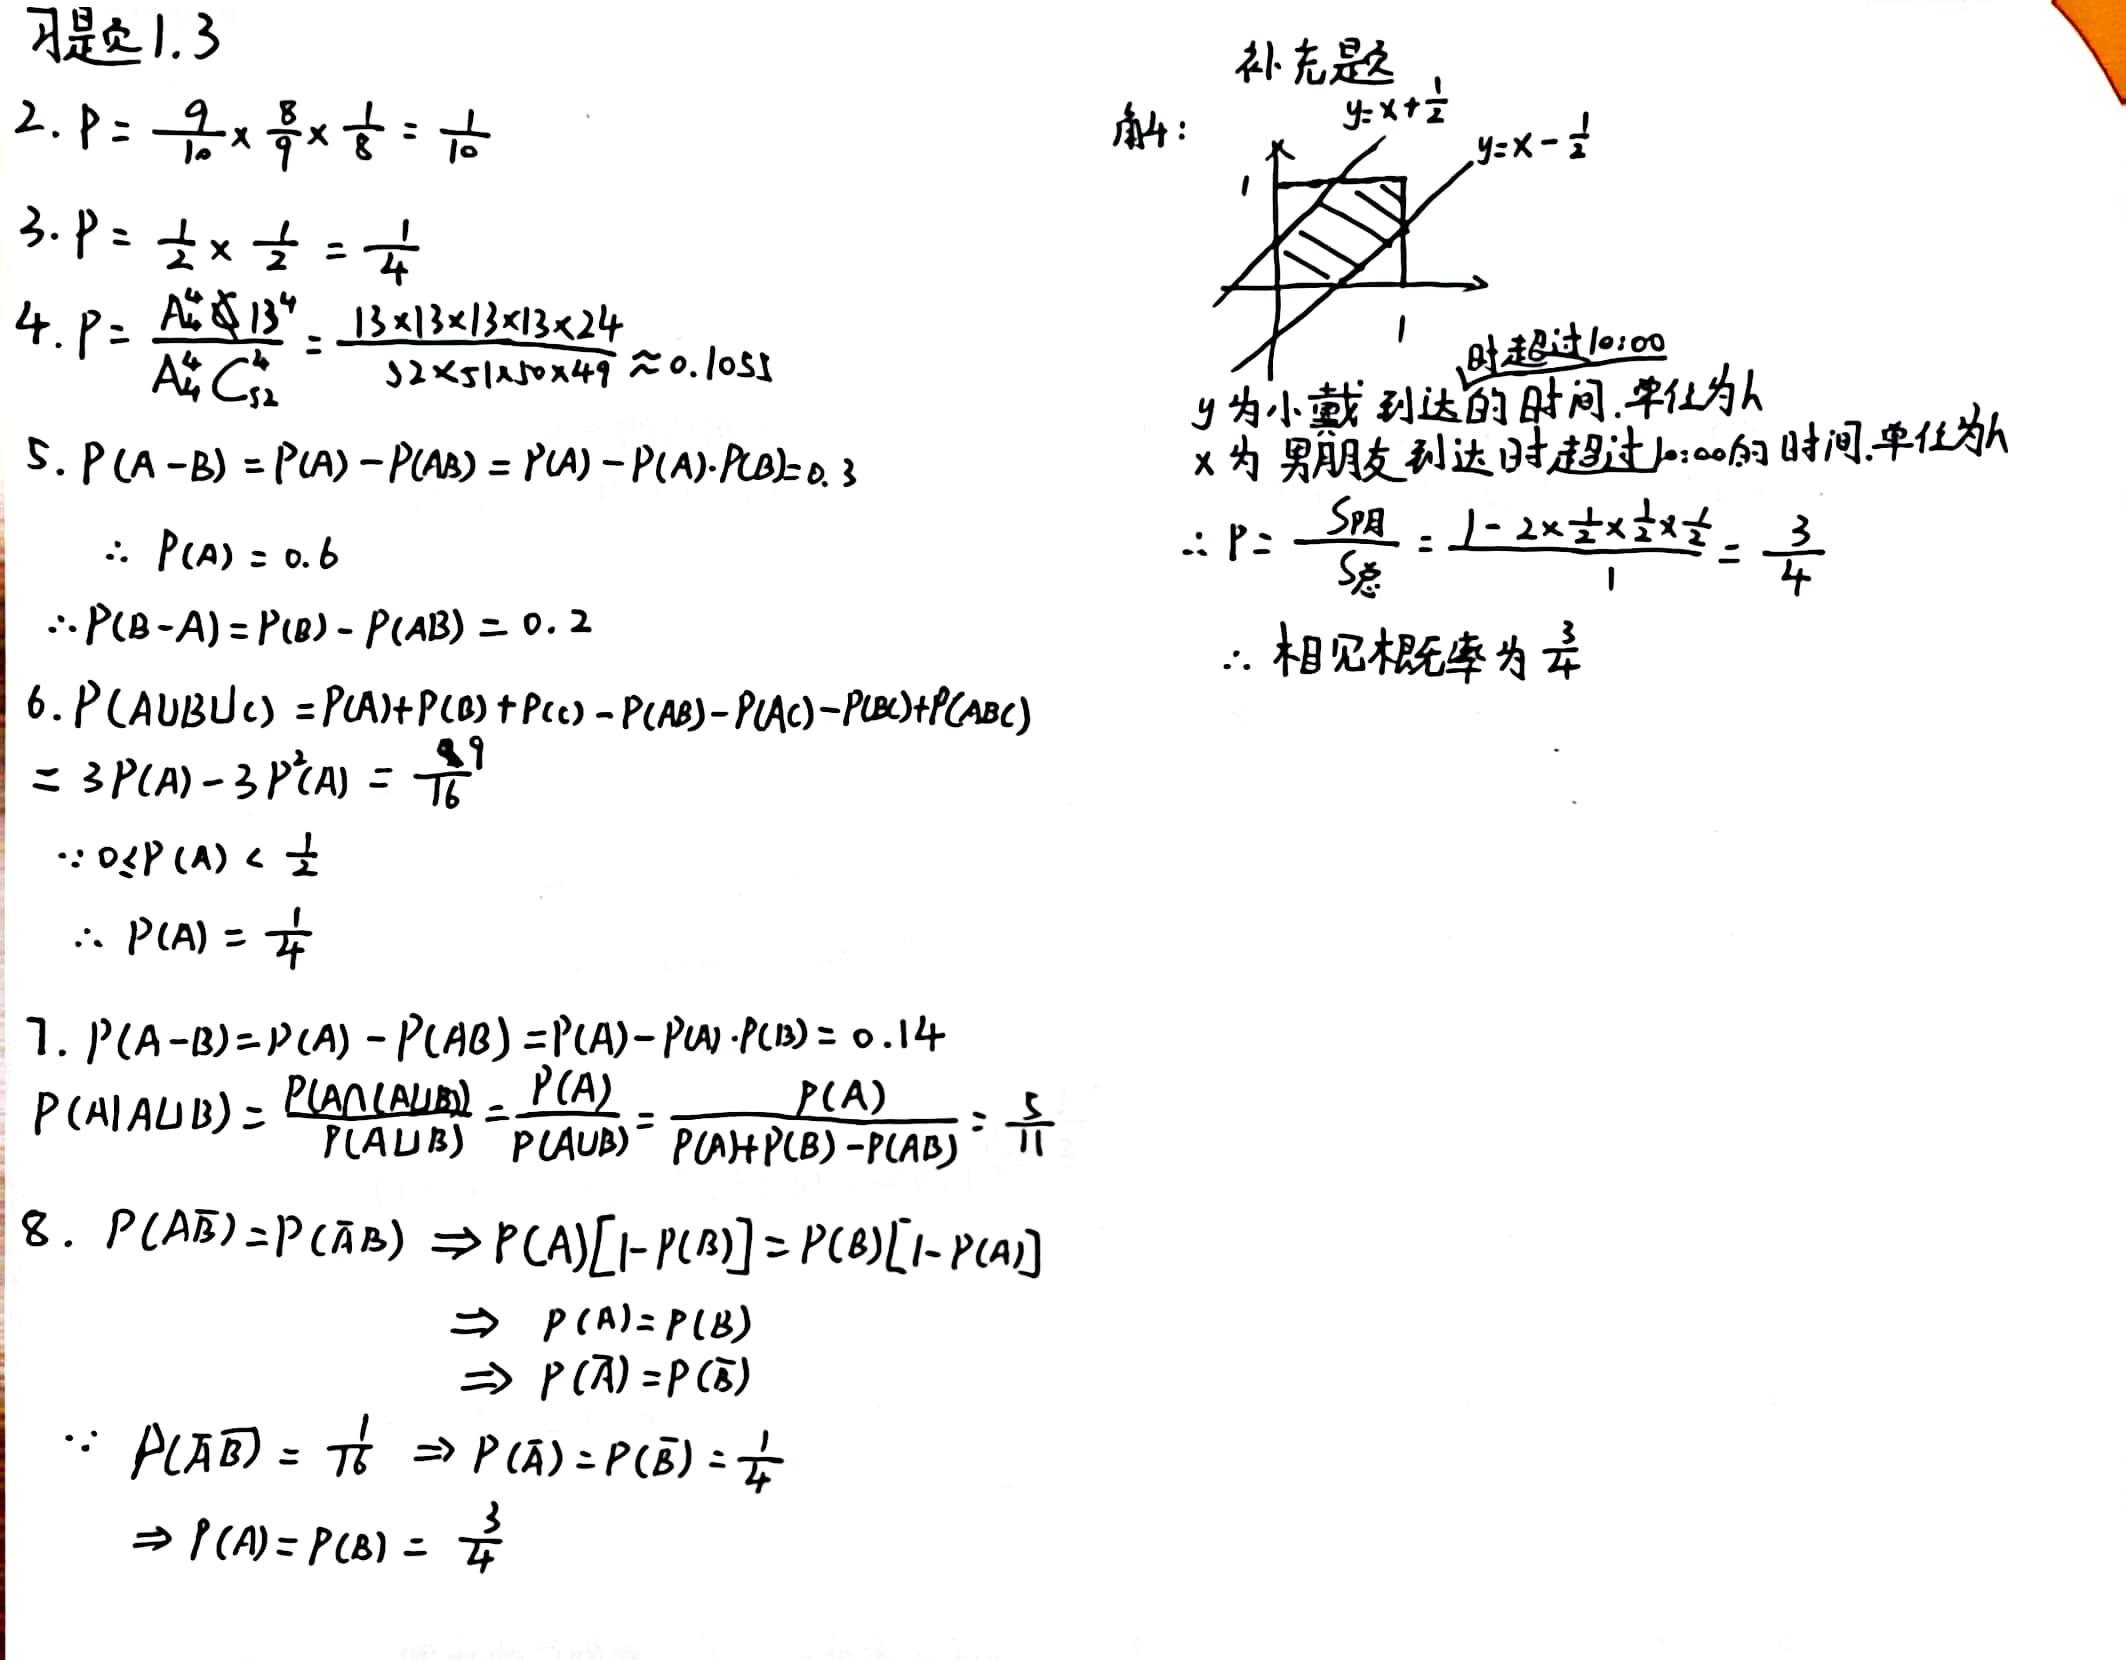 习题1.3
2. P = 9/10 × 8/9 × 1/8 = 1/10
3. P = 1/2 × 1/2 = 1/4
4. P = A₄⁴ 13⁴ / A₄⁴ C₅₂⁴ = 13×13×13×13×24 / 52×51×50×49 ≈ 0.1055
5. P(A-B) = P(A) - P(AB) = P(A) - P(A)·P(B) = 0.3
∴ P(A) = 0.6
∴ P(B-A) = P(B) - P(AB) = 0.2
6. P(A∪B∪C) = P(A)+P(B)+P(C)-P(AB)-P(AC)-P(BC)+P(ABC)
= 3P(A) - 3P²(A) = 9/16
∵ 0≤P(A) < 1/2
∴ P(A) = 1/4
7. P(A-B) = P(A) - P(AB) = P(A) - P(A)·P(B) = 0.14
P(A|A∪B) = P(A∩(A∪B)) / P(A∪B) = P(A) / P(A∪B) = P(A) / P(A)+P(B)-P(AB) = 5/11
8. P(AB̄) = P(ĀB) ⇒ P(A)[1-P(B)] = P(B)[1-P(A)]
⇒ P(A) = P(B)
⇒ P(Ā) = P(B̄)
∵ P(ĀB̄) = 1/16 ⇒ P(Ā) = P(B̄) = 1/4
⇒ P(A) = P(B) = 3/4
补充题
解:
y=x+1/2
y=x-1/2
1
1
时超过10:00
y为小戴到达的时间.单位为h
x为男朋友到达时超过10:00的时间.单位为h
∴ P = S阴/S总 = 1-2×1/2×1/2×1/2 / 1 = 3/4
∴ 相见概率为 3/4